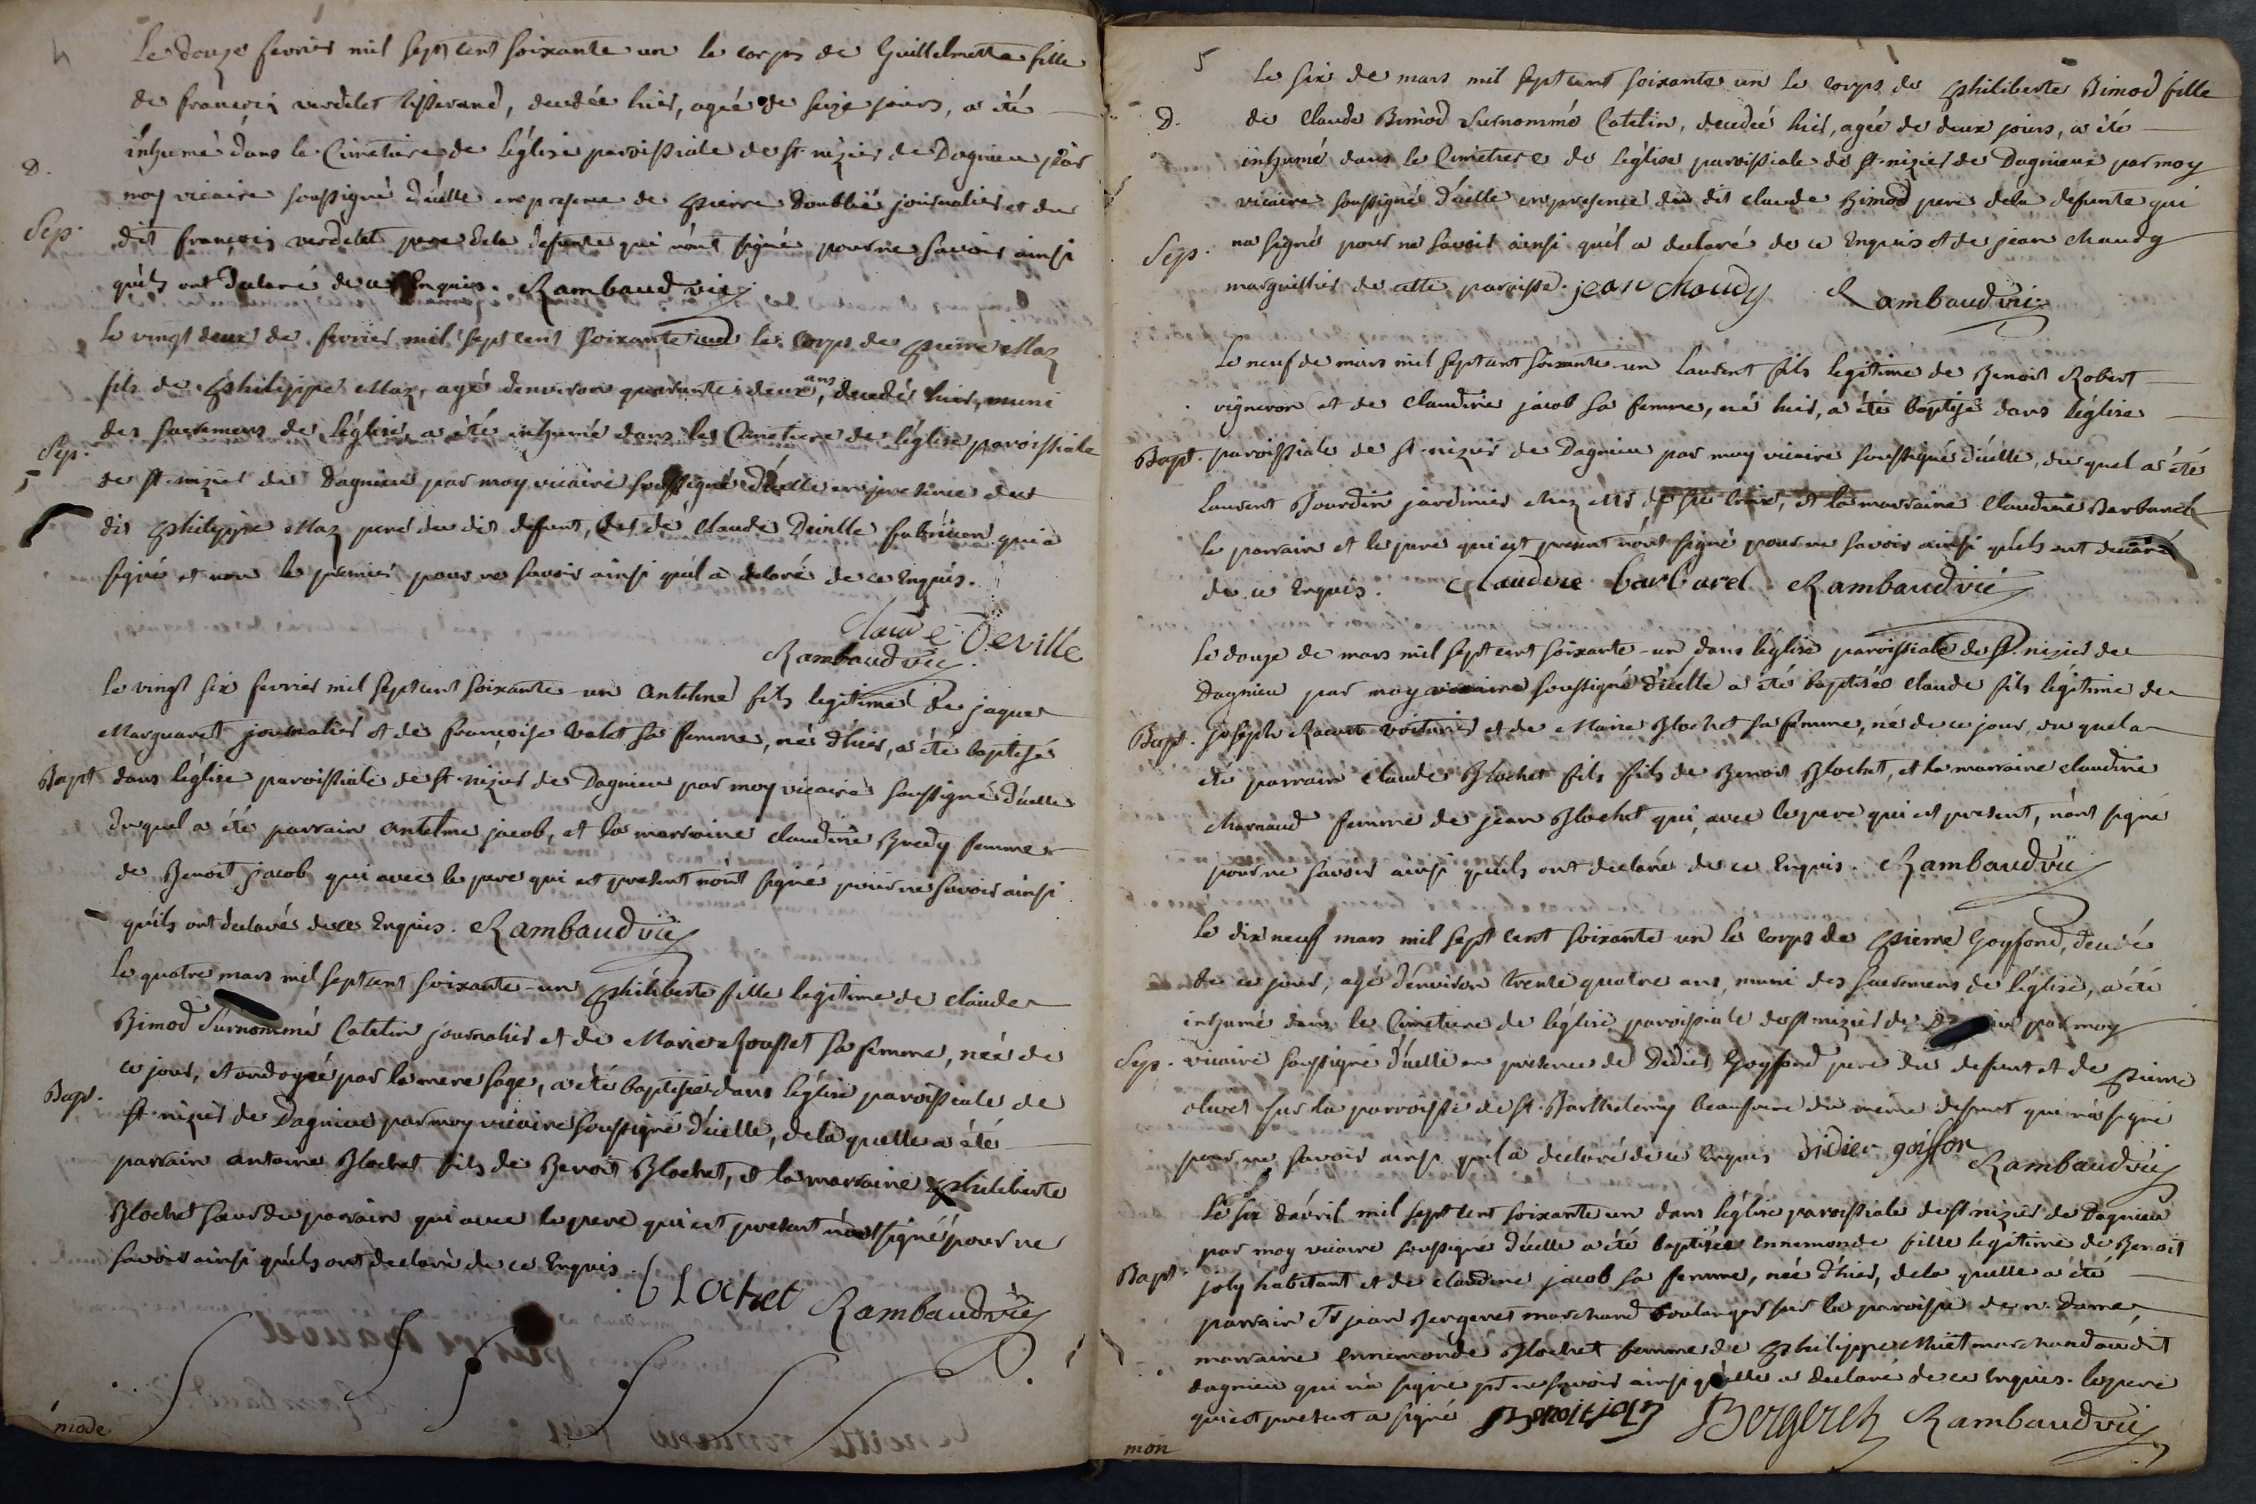 Le douze fevrier mil sept cent soixante un le corps de Guillelmette fille
de françois verdelet tisserand, decedée hier, agée de seize jours, a été
inhumé dans le Cimetiere de l'église paroissiale de st nizier de Dagnieu par
D.
moy vicaire soussigné d'icelle en presence de pierre doublié journalier et du
Sep.
dit françois verdelet pere de la defunte qui n'ont signé pour ne savoir ainsi
qu'ils ont declaré de ce Enquis. Rambaud vic
le vingt deux de fevrier mil sept cent soixante un le corps de pierre Maz
fils de philippe Maz, agé d'environ quarante deux ans, decedé hier, muni
des sacremens de l'église, a été inhumé dans le Cimetiere de l'église paroissiale
Sep.
de st nizier de Dagnieu par moy vicaire soussigné d'icelle en presence du
dit philippe Maz pere du dit defunt, et de Claude Deville qui a
signé et non le premier pour ne savoir ainsi qu'il a declaré de ce Enquis.
Claude Deville
Rambaud vic
le vingt six fevrier mil sept cent soixante-un antelme fils legitime de jaques
Marguaret journalier et de françoise valet sa femme, né d'hier, a été baptisé
Bapt
dans l'église paroissiale de st nizier de Dagnieu par moy vicaire soussigné d'icelle
duquel a été parrain antelme jacob, et la marraine claudine femme
de Benoit jacob qui avec le pere qui est present n'ont signé pour ne savoir ainsi
qu'ils ont declaré de ce Enquis. Rambaud vic
le quatre mars mil sept cent soixante-un philiberte fille legitime de claude
Bimod surnommé Catelin journalier et de Marie Rousset sa femme, née de
ce jour, et ondoyée par la mere sage, a été baptisée dans l'église paroissiale de
Bapt.
st nizier de Dagnieu par moy vicaire soussigné d'icelle, de la quelle a été
parrain antoine Blochet fils de Benoit Blochet, et la marraine philiberte
Blochet sœur du parrain qui avec le pere qui est present n'ont signé pour ne
savoir ainsi qu'ils ont declaré de ce Enquis.
Blochet Rambaud vic
5
le six de mars mil sept cent soixante un le corps de philiberte Bimod fille
D.
de claude Bimod surnommé Catelin, decedée hier, agée de deux jours, a été
inhumé dans le Cimetiere de l'église paroissiale de st nizier de Dagnieux par moy
vicaire soussigné d'icelle en presence du dit claude Bimod pere de la defunte qui
Sep.
n'a signé pour ne savoir ainsi qu'il a declaré de ce Enquis et de jean chaudy
marguillier de cette paroisse. jean chaudy Rambaud vic
le neuf de mars mil sept cent soixante-un Laurent fils legitime de Benoit Robert
vigneron et de claudine jacob sa femme, né hier, a été baptisé dans l'église
Bapt.
paroissiale de st nizier de Dagnieu par moy vicaire soussigné d'icelle, du quel a été
Laurent Bourdin jardinier chez Mr de et la marraine claudine Barbarel
le parrain et le pere qui est present n'ont signé pour ne savoir ainsi qu'ils ont declaré
de ce Enquis. Claudine barbarel Rambaud vic
le douze de mars mil sept cent soixante-un dans l'église paroissiale de st nizier de
Dagnieu par moy vicaire soussigné d'icelle a été baptisé claude fils légitime de
Bapt.
joseph voiturier et de Marie Blochet sa femme, né de ce jour, du quel a
été parrain claude Blochet fils fils de Benoit Blochet, et la marraine claudine
Charnaud femme de jean Blochet qui, avec le pere qui est present, n'ont signé
pour ne savoir ainsi qu'ils ont declaré de ce Enquis. Rambaud vic
le dix neuf mars mil sept cent soixante un le corps de pierre Goyffond, decedé
de ce jour, agé d'environ trente quatre ans, muni des sacremens de l'église, a été
inhumé dans le Cimetiere de l'église paroissiale de st nizier de par moy
Sep.
vicaire soussigné d'icelle en presence de Didier Goyffond pere du defunt et de pierre
olivet sur la parroisse de st Barthelemy beaufrere du meme defunt qui n'a signé
pour ne savoir ainsi qu'il a declaré de ce Enquis Didier goiffon Rambaud vic
le six d'avril mil sept cent soixante un dans l'église paroissiale de st nizier de Dagnieu
par moy vicaire soussigné d'icelle a été baptisée ennemonde fille legitime de Benoit
Bapt.
joly habitant et de claudine jacob sa femme, née d'hier, de la quelle a été
parrain Sr jean Bergeret marchand boulanger sur la paroisse de n. Dame
marraine ennemonde Blochet femme de philippe Miet marchand audit
dagnieu qui n'a signé pr ne savoir ainsi qu'elle a declaré de ce enquis. le pere
qui est present a signé Benoit joly Bergeret Rambaud vic